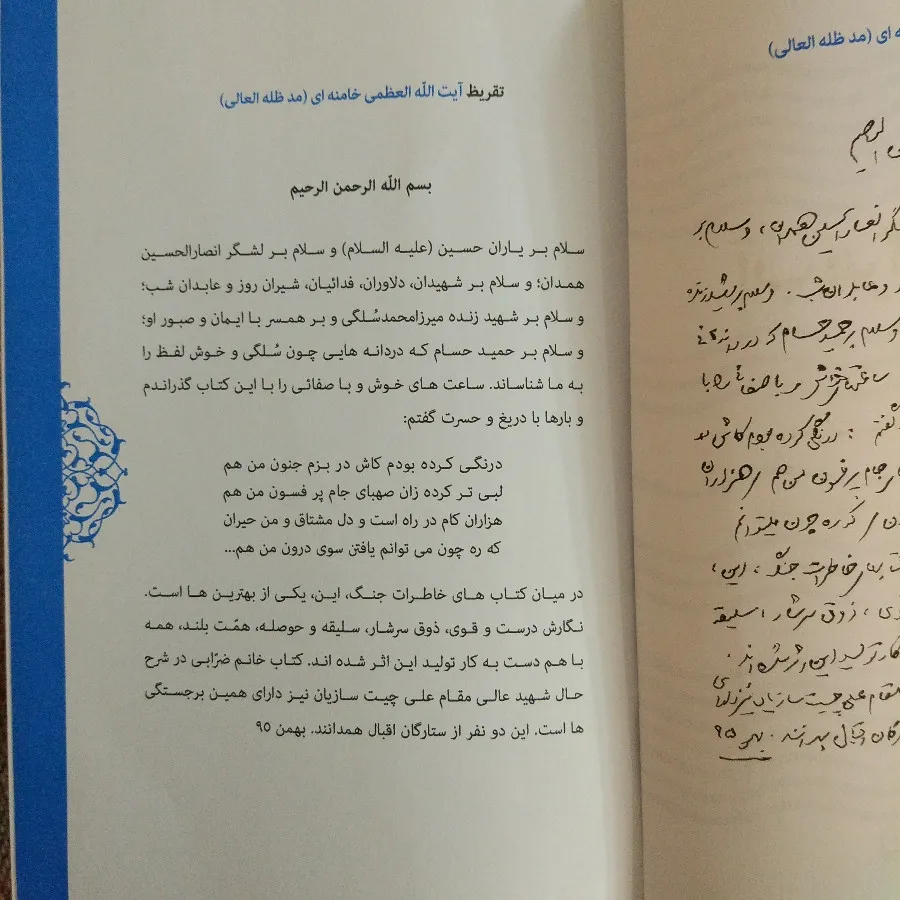 تقریظ آیت اللّه العظمی خامنه ای (مد ظله العالی)
بسم اللّه الرحمن الرحیم
سلام بر یاران حسین (علیه السلام) و سلام بر لشگر انصارالحسین
همدان؛ و سلام بر شهیدان، دلاوران، فدائیان، شیران روز و عابدان شب؛
و سلام بر شهید زنده میرزامحمدسُلگی و بر همسر با ایمان و صبور او؛
و سلام بر حمید حسام که دردانه هایی چون سُلگی و خوش لفظ را
به ما شناساند. ساعت های خوش و با صفائی را با این کتاب گذراندم
و بارها با دریغ و حسرت گفتم:
درنگی کرده بودم کاش در بزم جنون من هم
لبی تر کرده زان صهبای جام پر فسون من هم
هزاران کام در راه است و دل مشتاق و من حیران
که ره چون می توانم یافتن سوی درون من هم...
در میان کتاب های خاطرات جنگ، این، یکی از بهترین ها است.
نگارش درست و قوی، ذوق سرشار، سلیقه و حوصله، همّت بلند، همه
با هم دست به کار تولید این اثر شده اند. کتاب خانم ضرّابی در شرح
حال شهید عالی مقام علی چیت سازیان نیز دارای همین برجستگی
ها است. این دو نفر از ستارگان اقبال همدانند. بهمن ۹۵
ه ای (مد ظله العالی)
الرحیم
انصار الحسین همدان، و سلام بر
و سلام بر شهید زنده
و سلام بر حمید حسام که دردانه
خوش و با صفائی را با
گفتم: درنگی کرده بودم کاش در
جام پر فسون من هم هزاران
که ره چون میتوانم
خاطرات جنگ، این،
ذوق سرشار، سلیقه
کار تولید این اثر شده اند.
علی چیت سازیان نیز دارای
اقبال همدانند. بهمن ۹۵